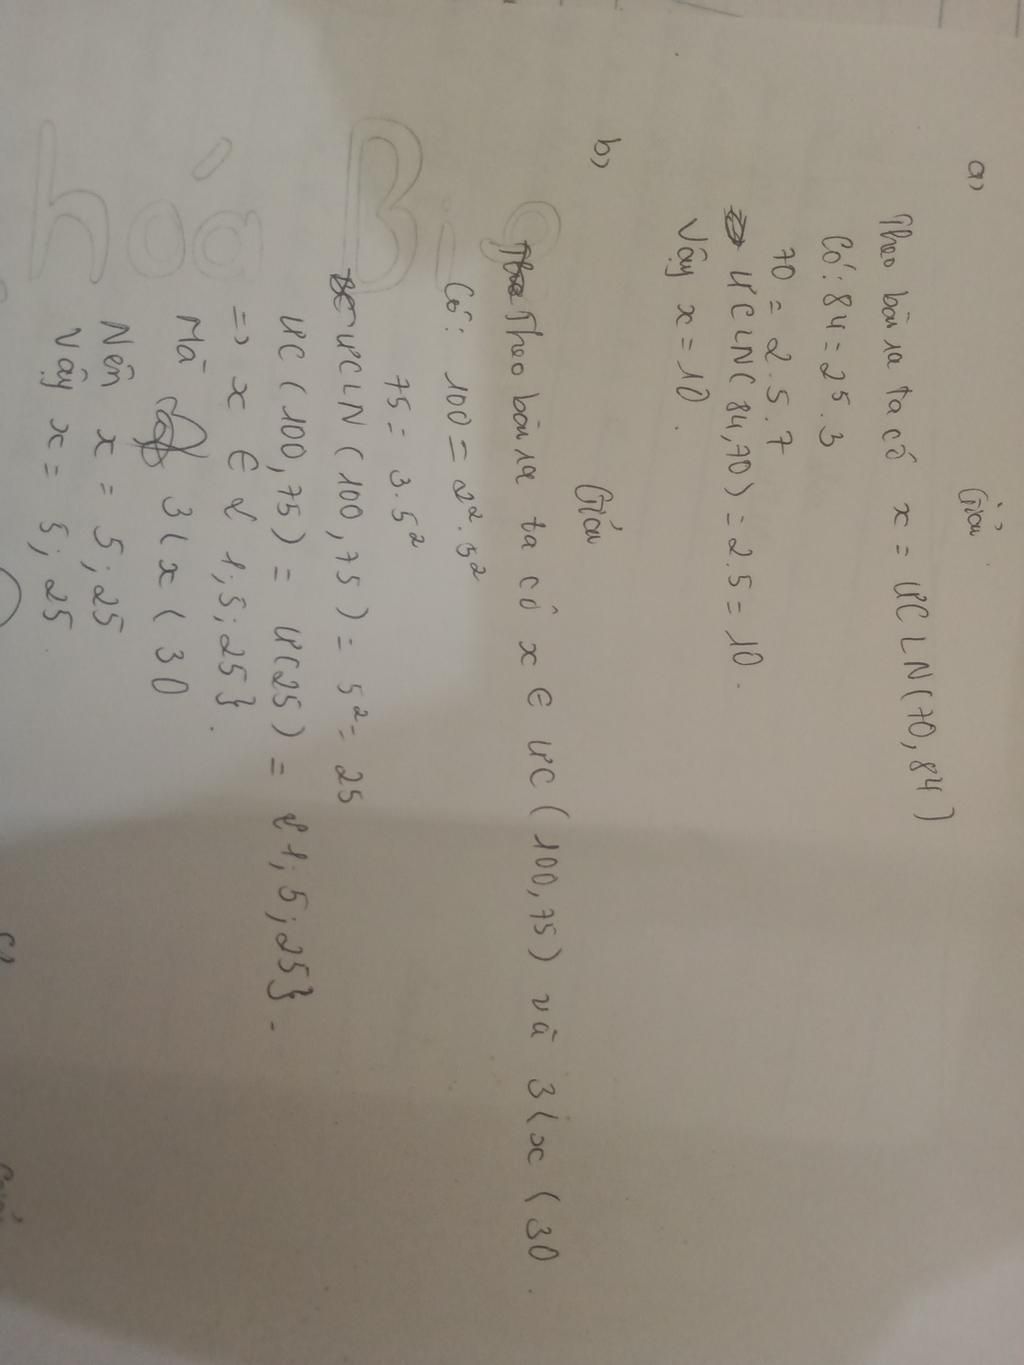 Giải
a)
Theo bài ra ta có x = ƯCLN(70,84)
Có: 84 = 2⁵.3
70 = 2.5.7
ƯCLN(84,70) = 2.5 = 10.
Vậy x = 10.
Giải
b)
Theo bài ra ta có x ∈ ƯC(100,75) và 3 < x < 30.
Có: 100 = 2².5²
75 = 3.5²
ƯCLN(100,75) = 5² = 25
ƯC(100,75) = Ư(25) = {1;5;25}.
=> x ∈ {1;5;25}.
Mà 3 < x < 30
Nên x = 5;25
Vậy x = 5;25
c)